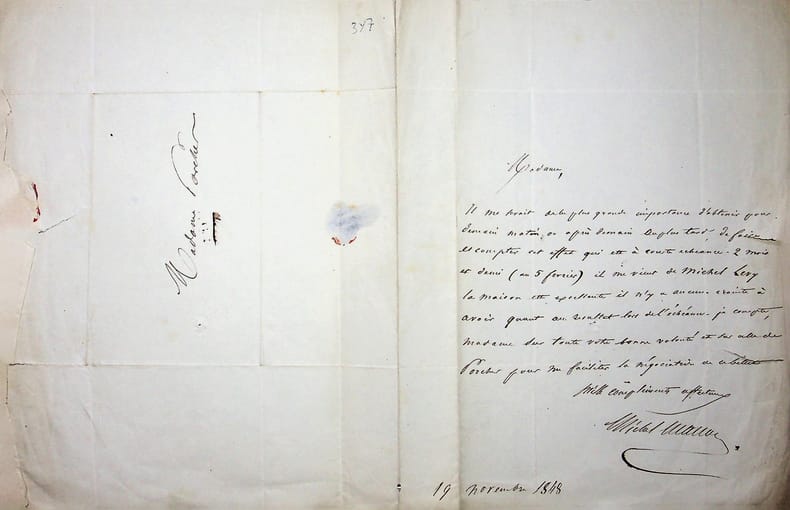 347
Madame Porcher
Madame,
Il me serait de la plus grande importance d'obtenir pour
demain matin, ou après demain au plus tard, de faire
escompter cet effet qui est à courte echéance. 2 mois
et demi (au 5 fevrier) il me vient de Michel Levy
la maison est excellente il n'y a aucune crainte à
avoir quant au resultat lors de l'échéance. je compte,
madame sur toute votre bonne volonté et sur celle de
Porcher pour me faciliter la négociation de ce billet
Mille compliments affectueux
Michel
19 novembre 1848